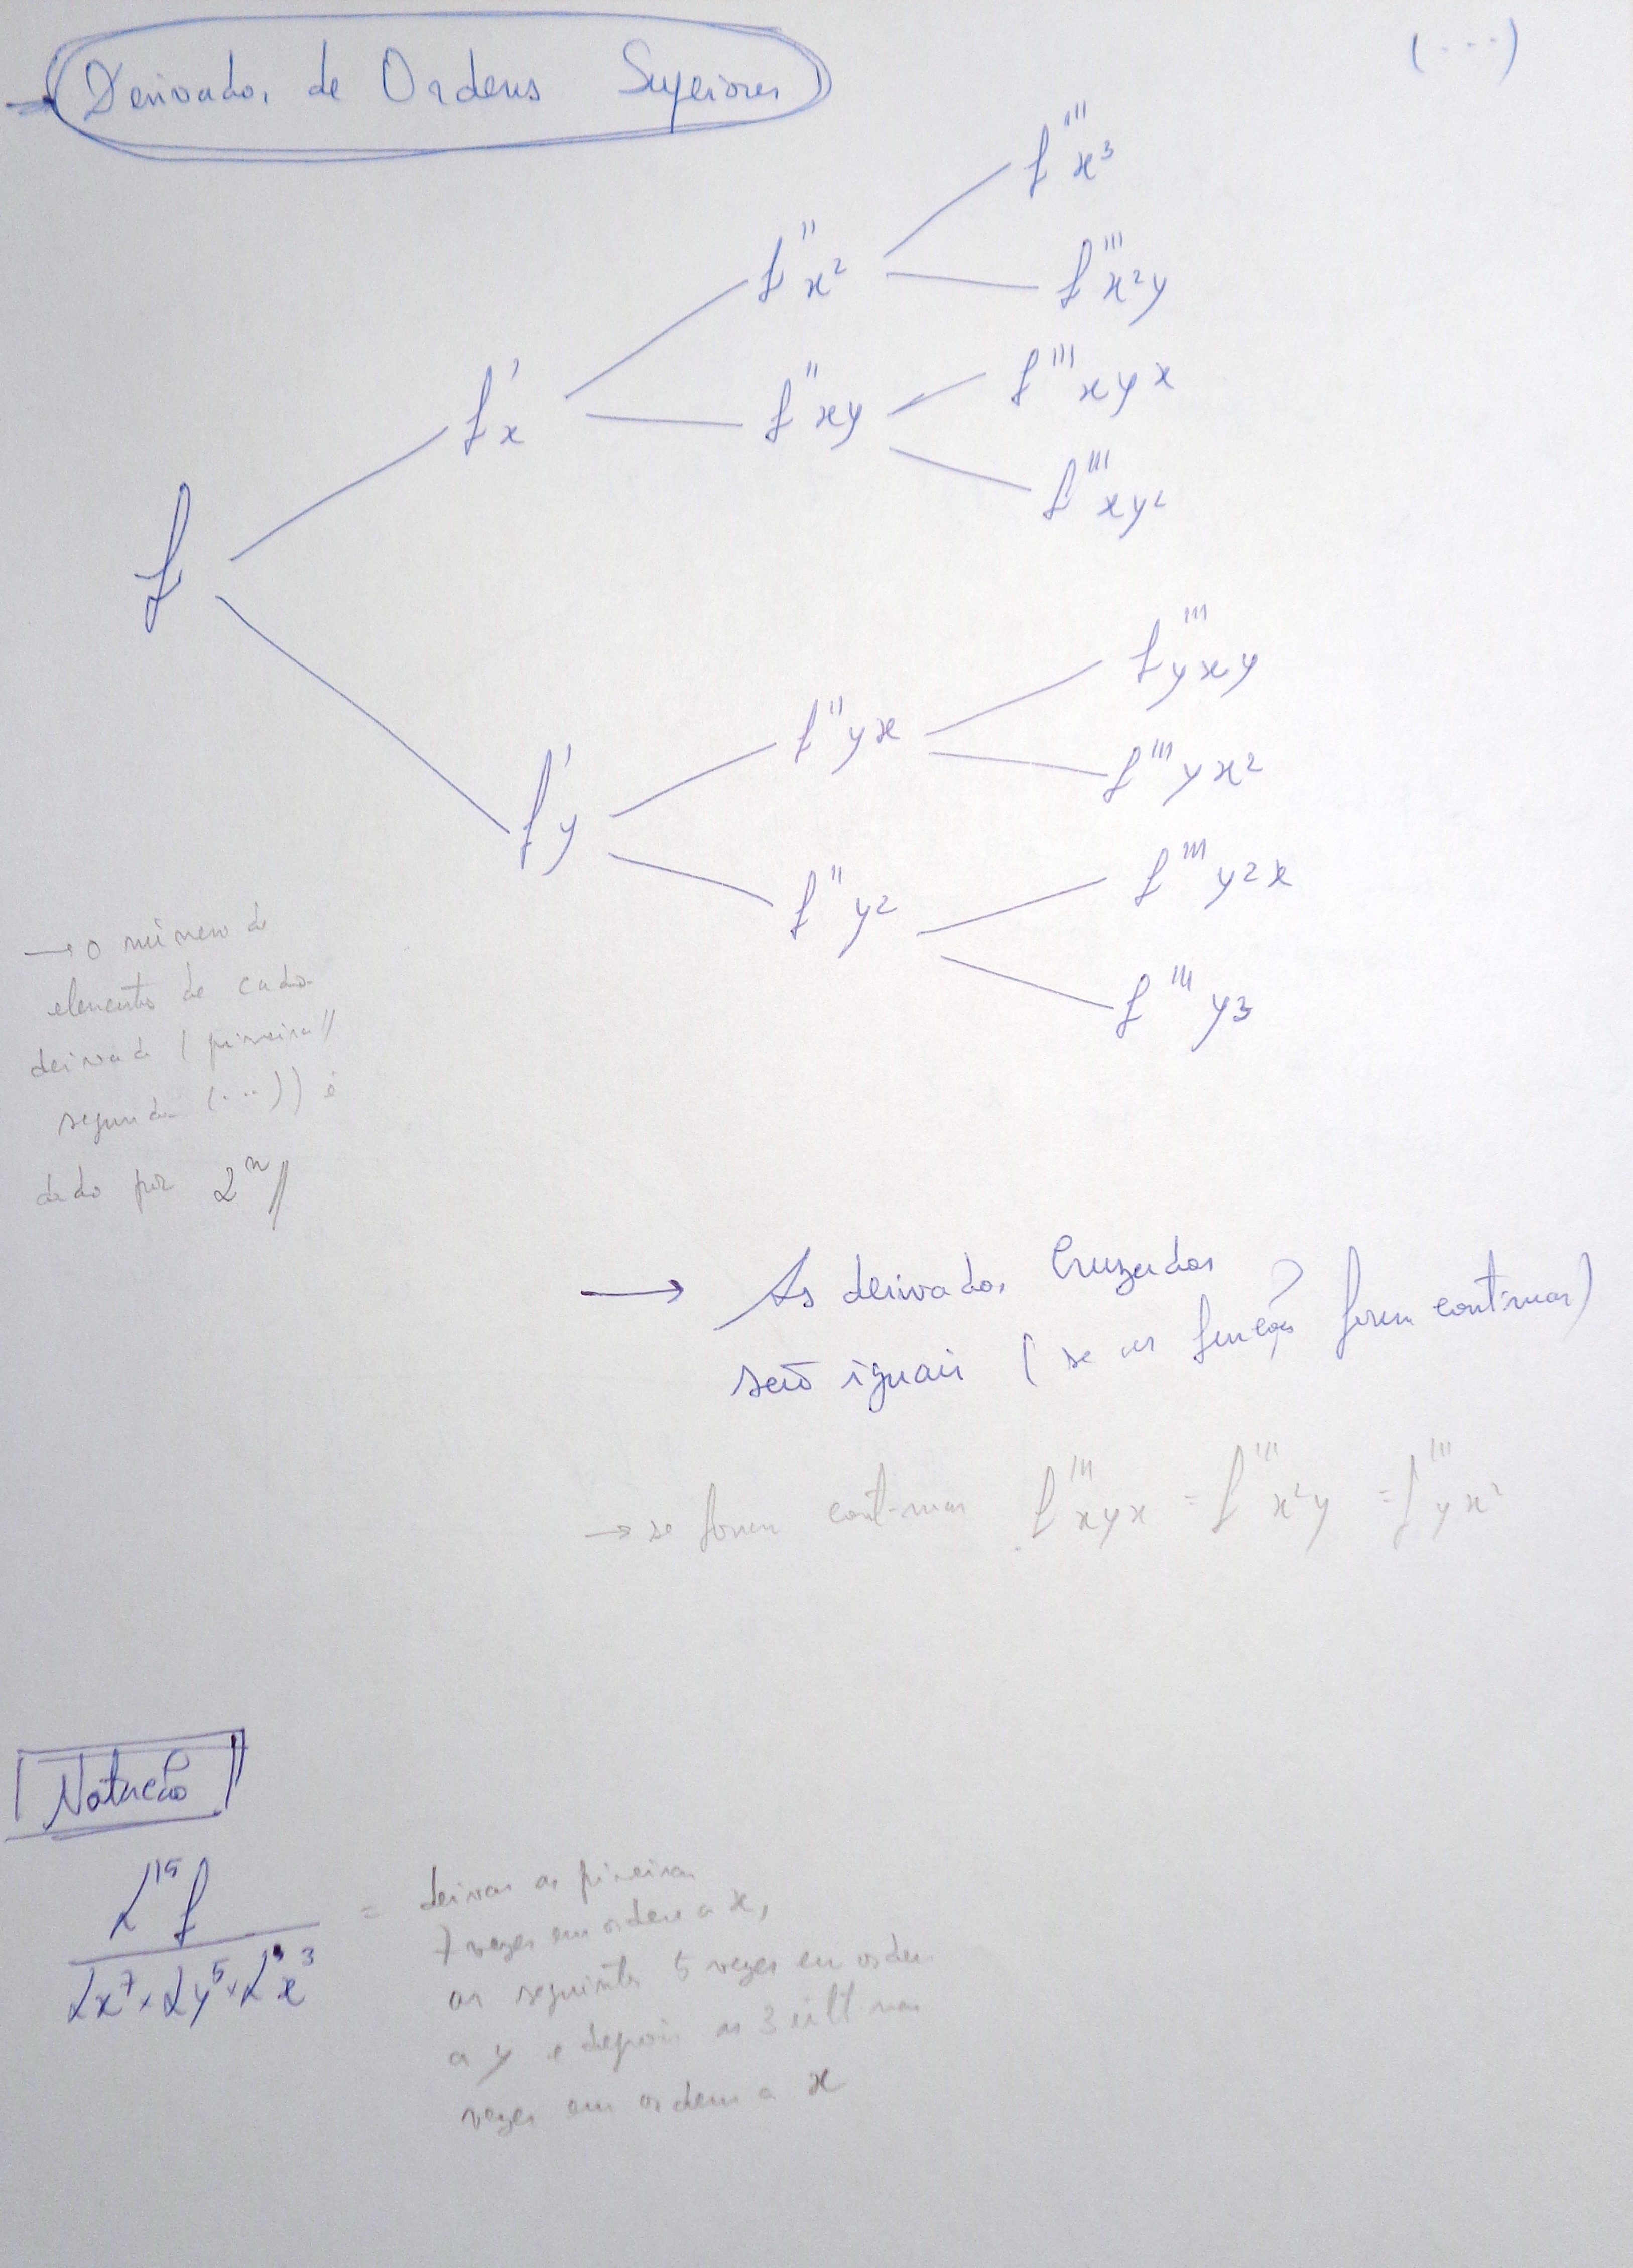 → Derivadas de Ordens Superiores
(...)
f'''x³
f''x²
f'''x²y
f'x
f''xy
f'''xyx
f'''xy²
f
f'''yxy
f''yx
f'''yx²
f'y
f''y²
f'''y²x
f'''y³
→ o número de
elementos de cada
derivada (primeira//
segunda (...)) é
dado por 2ⁿ//
→ As derivadas Cruzadas
são iguais (se as funções forem continuas)
→ se forem continuas f'''xyx = f'''x²y = f'''yx²
Notação
∂¹⁵f
∂x⁷.∂y⁵.∂x³
= derivar as primeiras
7 vezes em ordem a x,
as seguintes 5 vezes em ordem
a y e depois as 3 últimas
vezes em ordem a x